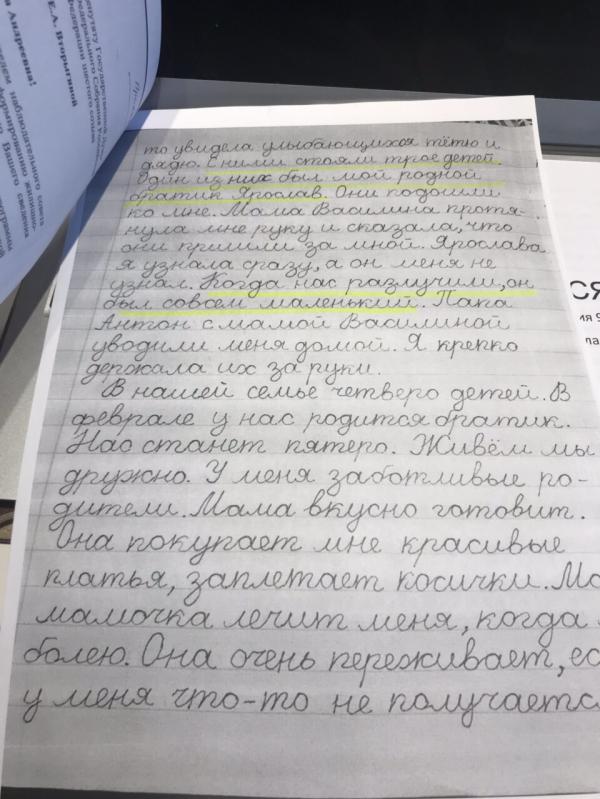 депутату Государственной Думы
Федерального Собрания
Федерации шестого созыва
Е.А. Вторыгиной
Андреевна!
наблюдательного совета
формированию
Вашего сведения
то увидела улыбающихся тётю и
дядю. С ними стояли трое детей.
Один из них был мой родной
братик Ярослав. Они подошли
ко мне. Мама Василина протя-
нула мне руку и сказала, что
они пришли за мной. Ярослава
я узнала сразу, а он меня не
узнал. Когда нас разлучили, он
был совсем маленький. Папа
Антон с мамой Василиной
уводили меня домой. Я крепко
держала их за руки.
В нашей семье четверо детей. В
феврале у нас родится братик.
Нас станет пятеро. Живём мы
дружно. У меня заботливые ро-
дители. Мама вкусно готовит.
Она покупает мне красивые
платья, заплетает косички. Мо
мамочка лечит меня, когда
болею. Она очень переживает, ес
у меня что-то не получаетс
СЯ
ия 9